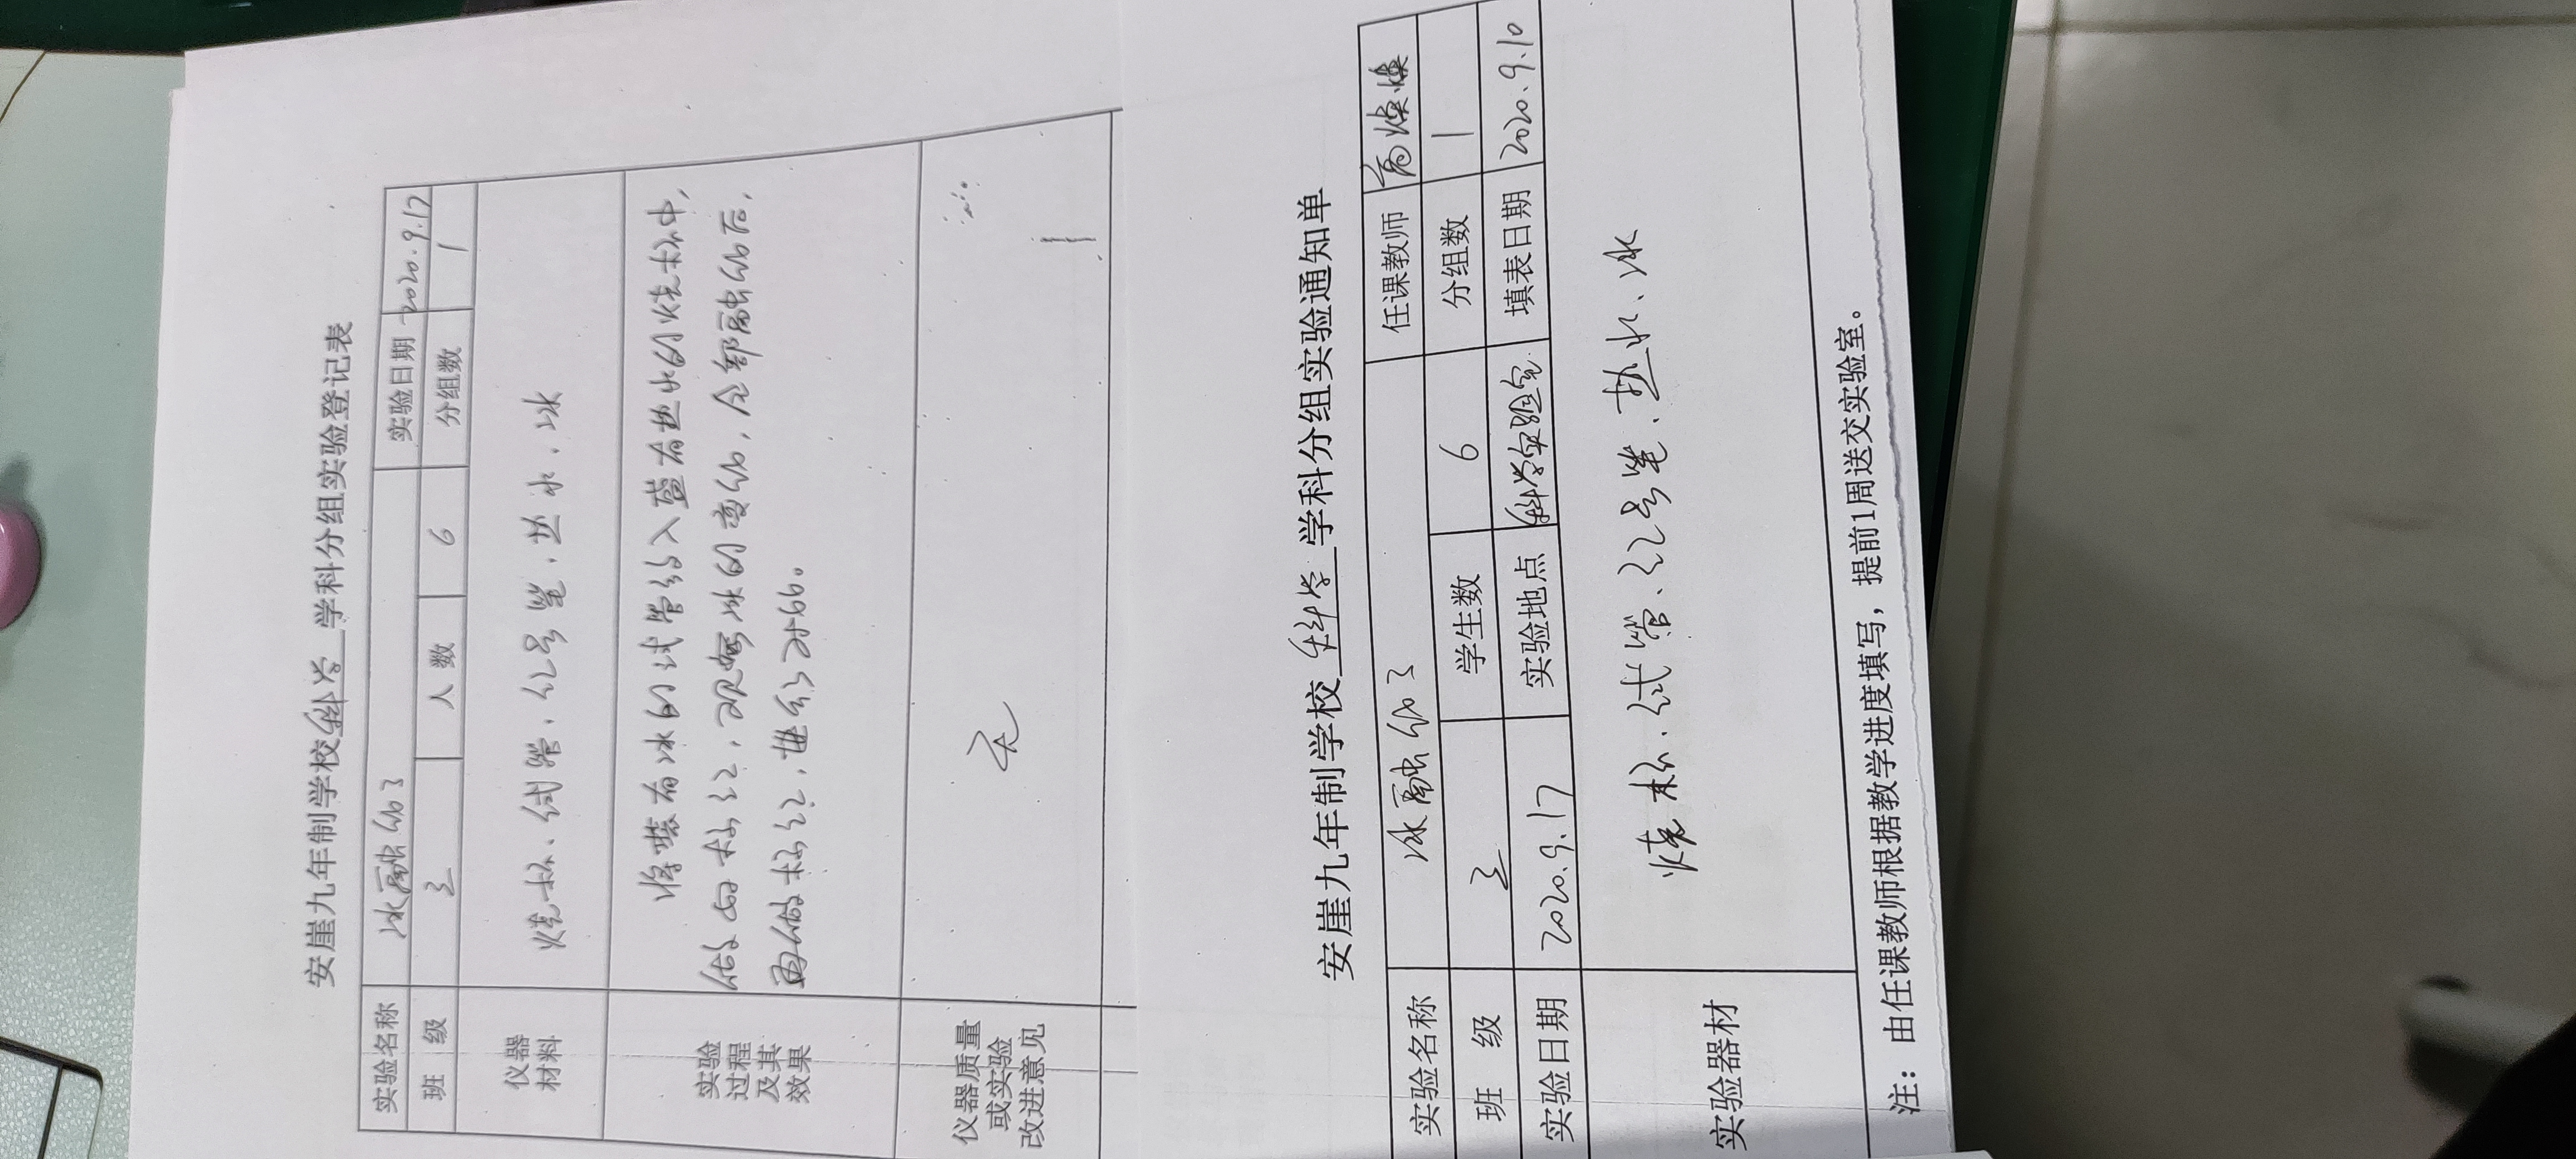 安崖九年制学校科学学科分组实验登记表
实验名称 冰融化了 实验日期 2020.9.17
班 级 三 人 数 6 分组数 1
仪器材料 烧杯、试管、红号笔、热水、冰
实验过程及其效果 将装有冰的试管放入盛有热水的烧杯中,
做好标红,观察冰的变化,全部融化后,
再做标红,进行对比。
仪器质量或实验改进意见 无
安崖九年制学校科学学科分组实验通知单
实验名称 冰融化了 任课教师
班 级 三 学生数 6 分组数 1
实验日期 2020.9.17 实验地点 科学实验室 填表日期 2020.9.10
实验器材 烧杯、试管、红号笔、热水、冰
注:由任课教师根据教学进度填写,提前1周送交实验室。